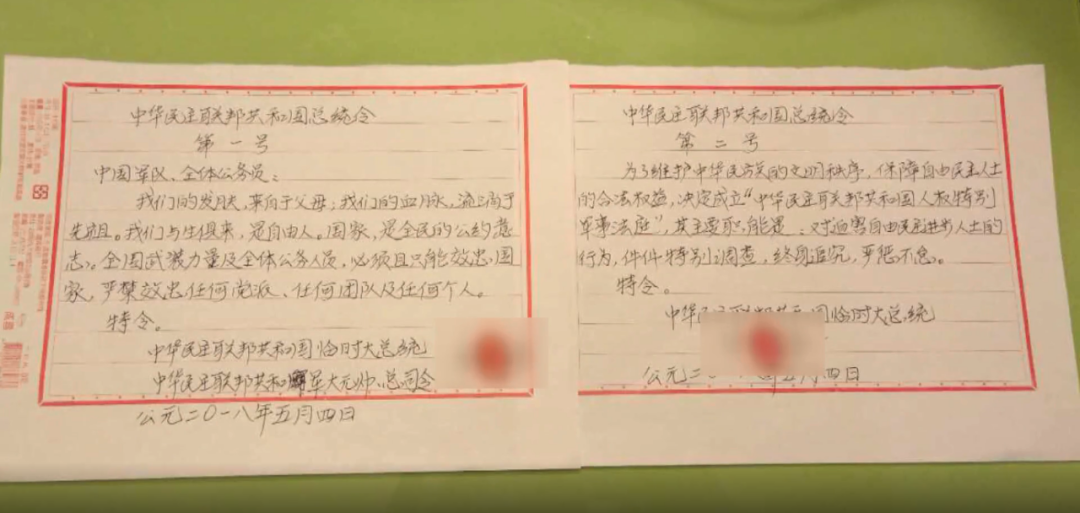 中华民主联邦共和国总统令
第一号
中国军队、全体公务员：
我们的发肤，来自于父母；我们的血脉，流淌于
先祖。我们与生俱来，是自由人。国家，是全民的公约意
志。全国武装力量及全体公务人员，必须且只能效忠国
家，严禁效忠任何党派、任何团队及任何个人。
特令。
中华民主联邦共和国临时大总统
中华民主联邦共和国军大元帅、总司令
公元二〇一八年五月四日
中华民主联邦共和国总统令
第二号
为了维护中华民族的文明秩序，保障自由民主人士
的合法权益，决定成立“中华民主联邦共和国人权特别
军事法庭”，其主要职能是：对迫害自由民主进步人士的
行为，件件特别调查，终身追究，严惩不怠。
特令。
中华民主联邦共和国临时大总统
公元二 年五月四日